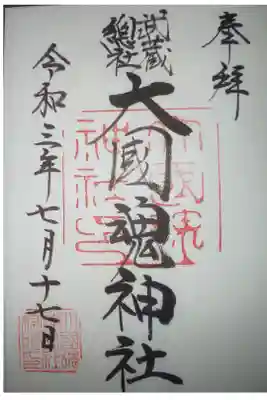 奉拝
武蔵
総社
大國魂神社
令和三年七月十七日